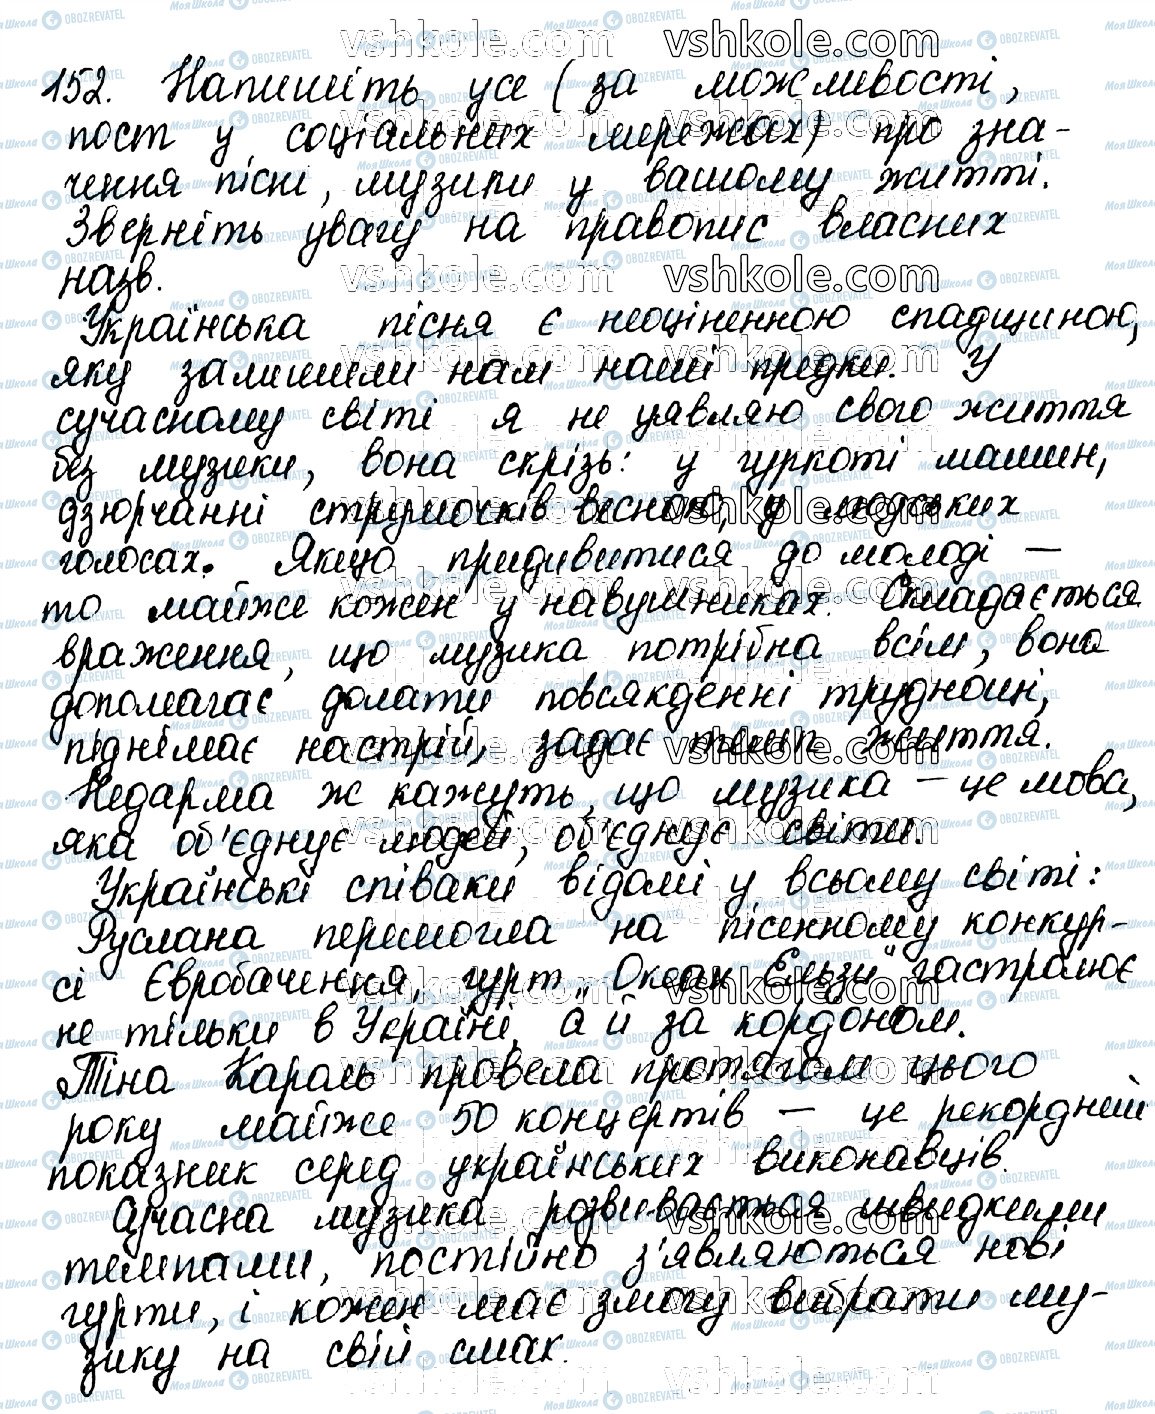 152. Напишіть усе (за можливості,
пост у соціальних мережах) про зна-
чення пісні, музики у вашому житті.
Зверніть увагу на правопис власних
назв.
Українська пісня є неоціненною спадщиною,
яку залишили нам наші предки. У
сучасному світі я не уявляю свого життя
без музики, вона скрізь: у гуркоті машин,
дзюрчанні струмочків весною, у людських
голосах. Якщо придивитися до молоді —
то майже кожен у навушниках. Складається
враження, що музика потрібна всім, вона
допомагає долати повсякденні труднощі,
піднімає настрій, задає темп життя.
Недарма ж кажуть, що музика – це мова,
яка об'єднує людей, об'єднує світи.
Українські співаки відомі у всьому світі:
Руслана перемогла на пісенному конкур-
сі Євробачення, гурт „Океан Ельзи" гастролює
не тільки в Україні, а й за кордоном.
Тіна Кароль провела протягом цього
року майже 50 концертів — це рекордний
показник серед українських виконавців.
Сучасна музика розвивається швидкими
темпами, постійно з'являються нові
гурти, і кожен має змогу вибрати му-
зику на свій смак.